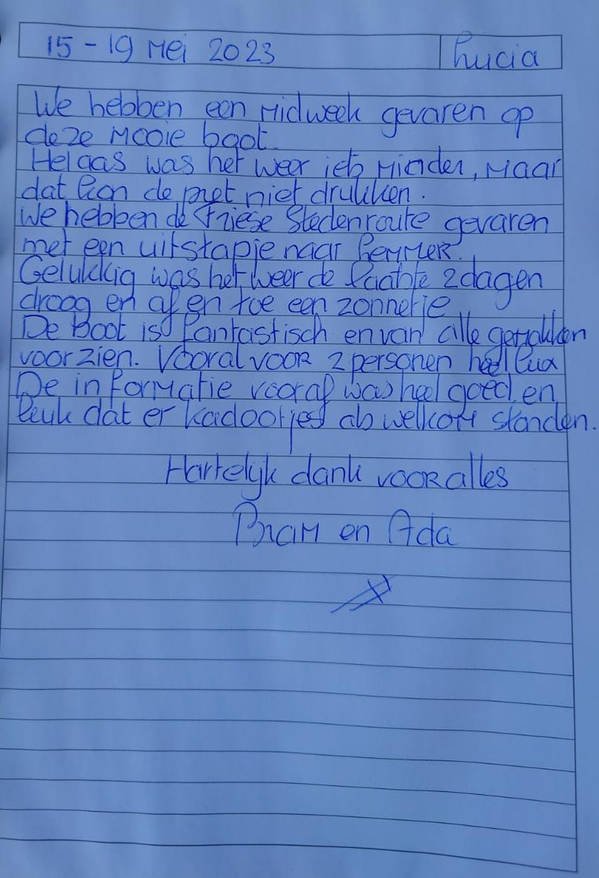 15 - 19 Mei 2023 Lucia
We hebben een Midweek gevaren op
deze Mooie boot.
Helaas was het weer iets Minder, Maar
dat kon de pret niet drukken.
We hebben de Friese Stedenroute gevaren
met een uitstapje naar Lemmer.
Gelukkig was het weer de laatste 2 dagen
droog en af en toe een zonnetje
De Boot is fantastisch en van alle gemakken
voorzien. Vooral voor 2 personen heel lux
De informatie vooraf was heel goed, en
leuk dat er kadootjes als welkom stonden.
Hartelijk dank voor alles
Bram en Ada